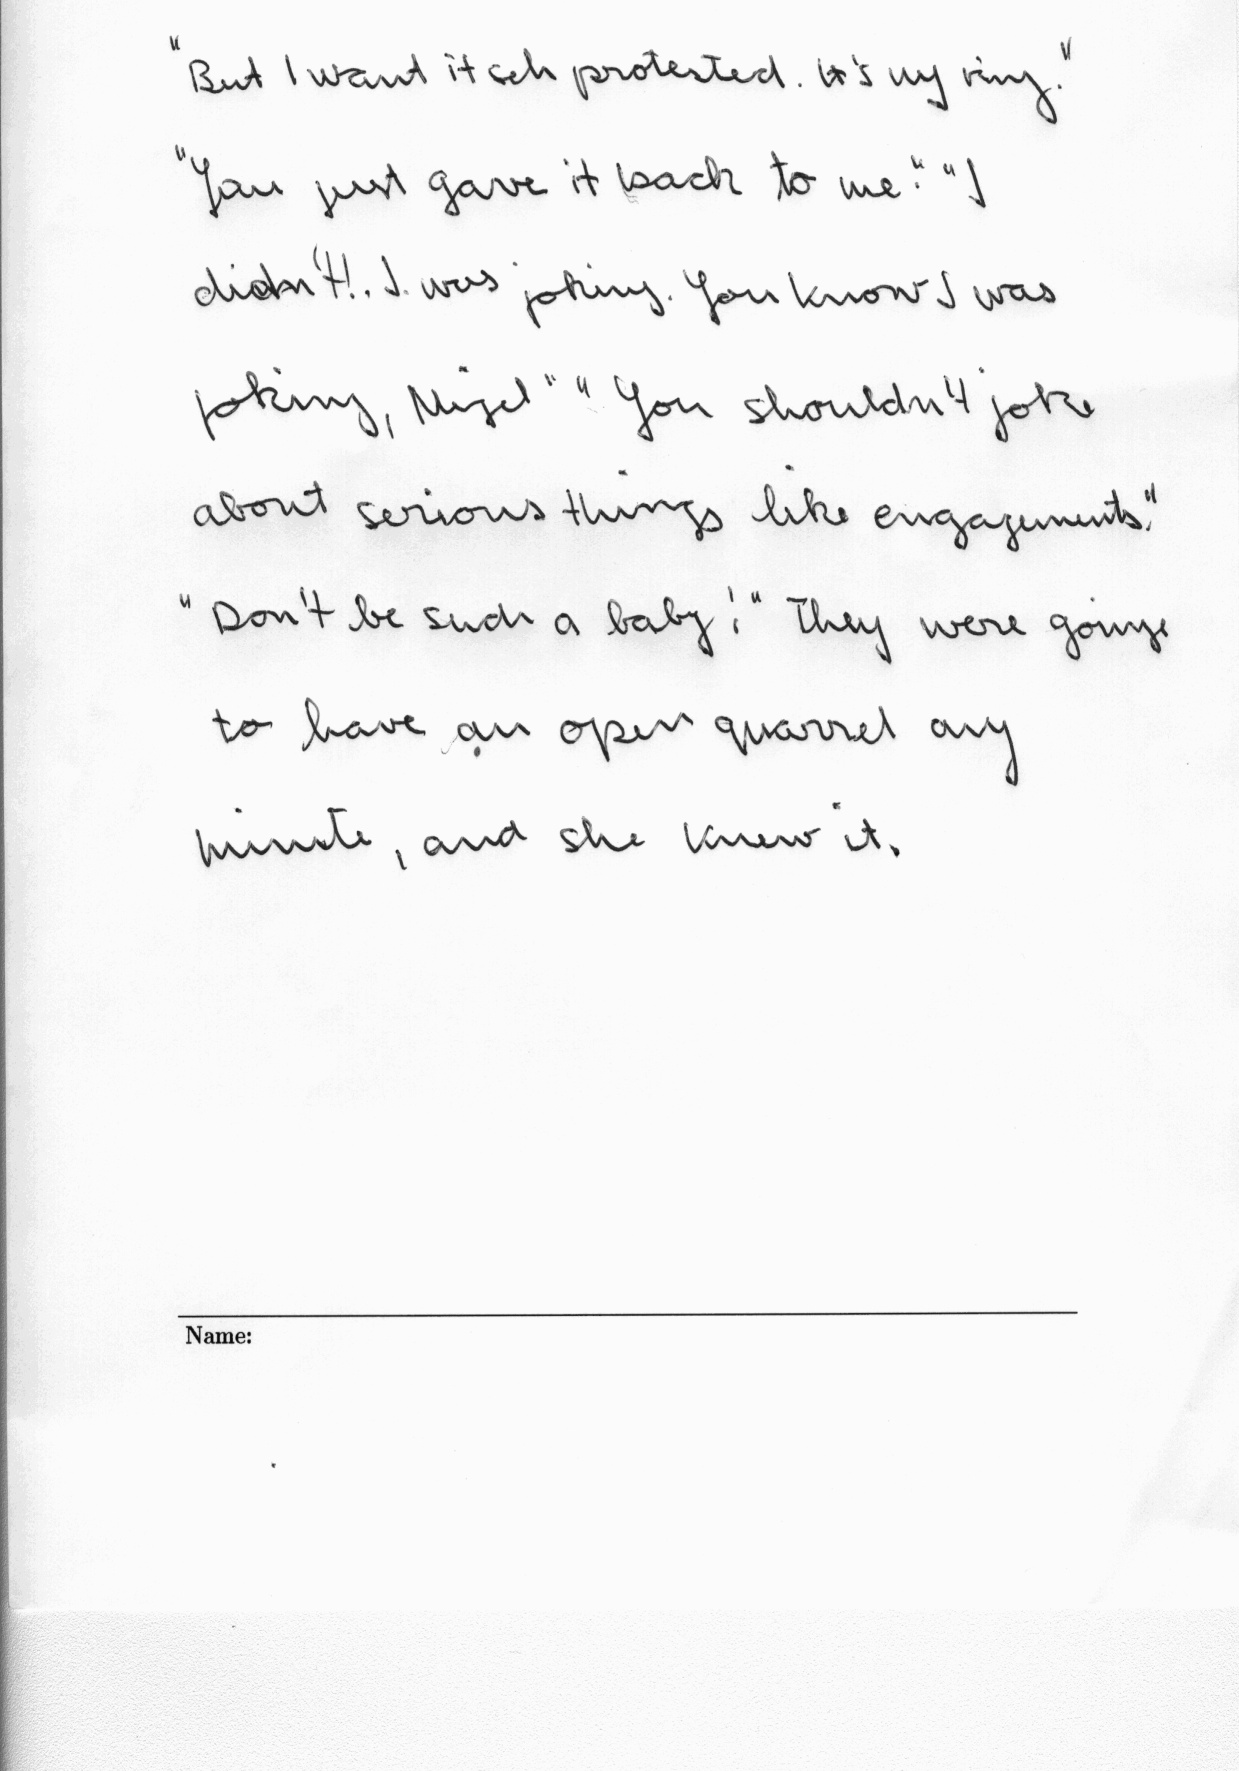 "But I want it seh protested. It's my ring."
"You just gave it back to me." "I
didn't!. I was joking. You know I was
joking, Nigel" "You shouldn't joke
about serious things like engagements."
"Don't be such a baby!" They were going
to have an open quarrel any
minute, and she knew it.
Name: